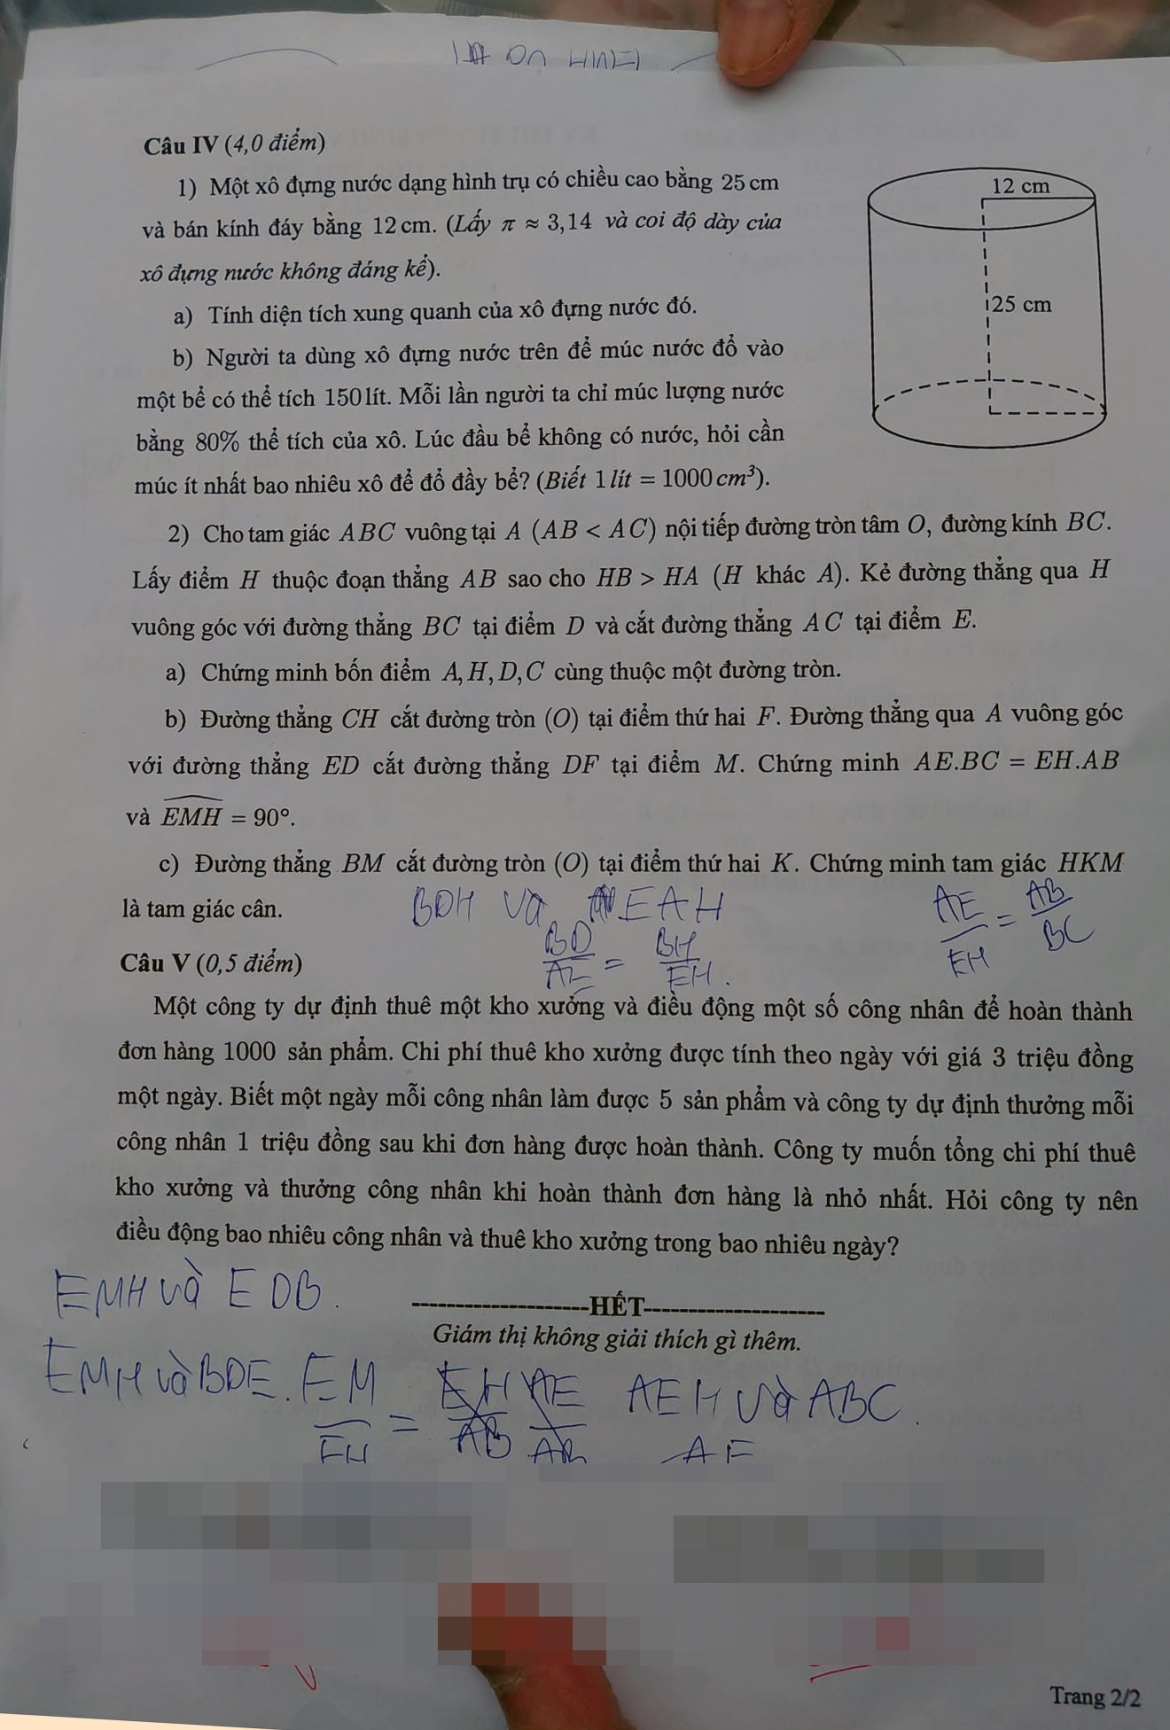 Câu IV (4,0 điểm)
1) Một xô đựng nước dạng hình trụ có chiều cao bằng 25 cm
và bán kính đáy bằng 12 cm. (Lấy π ≈ 3,14 và coi độ dày của
xô đựng nước không đáng kể).
12 cm
25 cm
a) Tính diện tích xung quanh của xô đựng nước đó.
b) Người ta dùng xô đựng nước trên để múc nước đổ vào
một bể có thể tích 150 lít. Mỗi lần người ta chỉ múc lượng nước
bằng 80% thể tích của xô. Lúc đầu bể không có nước, hỏi cần
múc ít nhất bao nhiêu xô để đổ đầy bể? (Biết 1 lít = 1000 cm³).
2) Cho tam giác ABC vuông tại A (AB < AC) nội tiếp đường tròn tâm O, đường kính BC.
Lấy điểm H thuộc đoạn thẳng AB sao cho HB > HA (H khác A). Kẻ đường thẳng qua H
vuông góc với đường thẳng BC tại điểm D và cắt đường thẳng AC tại điểm E.
a) Chứng minh bốn điểm A, H, D, C cùng thuộc một đường tròn.
b) Đường thẳng CH cắt đường tròn (O) tại điểm thứ hai F. Đường thẳng qua A vuông góc
với đường thẳng ED cắt đường thẳng DF tại điểm M. Chứng minh AE.BC = EH.AB
và EMH = 90°.
c) Đường thẳng BM cắt đường tròn (O) tại điểm thứ hai K. Chứng minh tam giác HKM
là tam giác cân.
BDH và EAH
BD/AE = BH/EH.
AE/EH = AB/BC
Câu V (0,5 điểm)
Một công ty dự định thuê một kho xưởng và điều động một số công nhân để hoàn thành
đơn hàng 1000 sản phẩm. Chi phí thuê kho xưởng được tính theo ngày với giá 3 triệu đồng
một ngày. Biết một ngày mỗi công nhân làm được 5 sản phẩm và công ty dự định thưởng mỗi
công nhân 1 triệu đồng sau khi đơn hàng được hoàn thành. Công ty muốn tổng chi phí thuê
kho xưởng và thưởng công nhân khi hoàn thành đơn hàng là nhỏ nhất. Hỏi công ty nên
điều động bao nhiêu công nhân và thuê kho xưởng trong bao nhiêu ngày?
EMH và EDB.
--------------------HẾT--------------------
Giám thị không giải thích gì thêm.
EMH và BDE. EM/EH = EH/AB AE/AB AEH và ABC.
AE
Trang 2/2